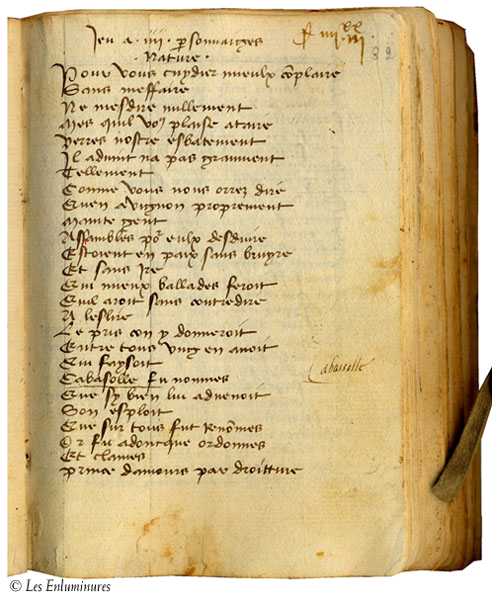 Jeu a iiii personnaiges
f iiii xx iii
82
Nature
Pour vous cuydier mieulx complaire
Sans meffaire
Ne mesdire nullement
Mes quil voy plaise ataire
Verres nostre esbatement
Il advint na pas granment
Tellement
Comme vous nous orrez dire
Quen avignon proprement
Mainte gent
Assambles por eulx desduire
Estoient en paix sans bruyre
Et sans ire
Qui mieux ballades feroit
Quil aroit sans contredire
A leslire
Le pris con y donneroit
Entre tous ung en avoit
Qui faysoit
Cabasolle fu nommes
Cabassolle
Que sy bien lui advenoit
Son esploit
Que sur tous fut renommes
Or fu adoncque ordonnes
Et clames
Prince damours par droitture
© Les Enluminures